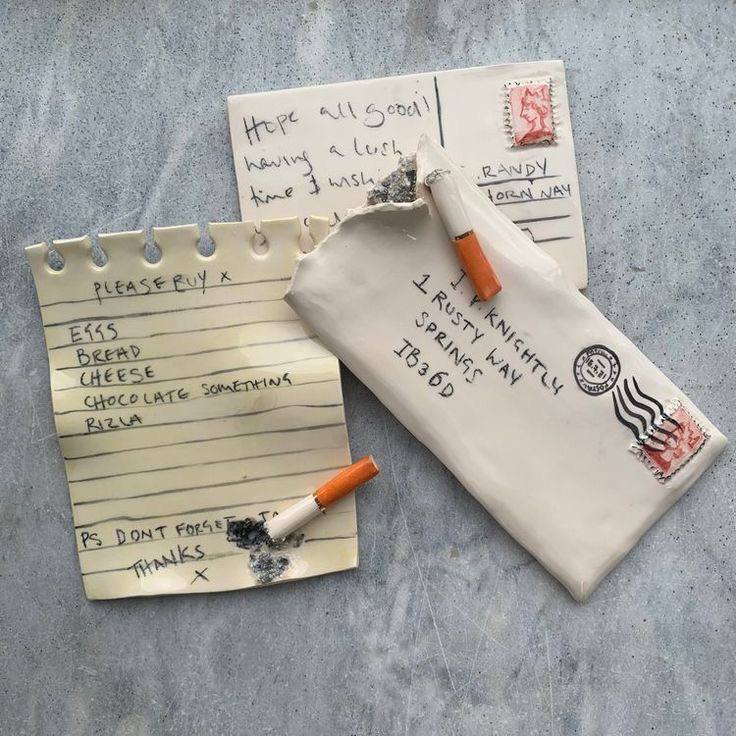 Hope all good!
having a lush
time & wish
RANDY
HORN NAY
PLEASE BUY x
EGGS
BREAD
CHEESE
CHOCOLATE SOMETHING
RIZLA
PS DONT FORGET
THANKS
x
KNIGHTLY
1 RUSTY WAY
SPRINGS
IB36D